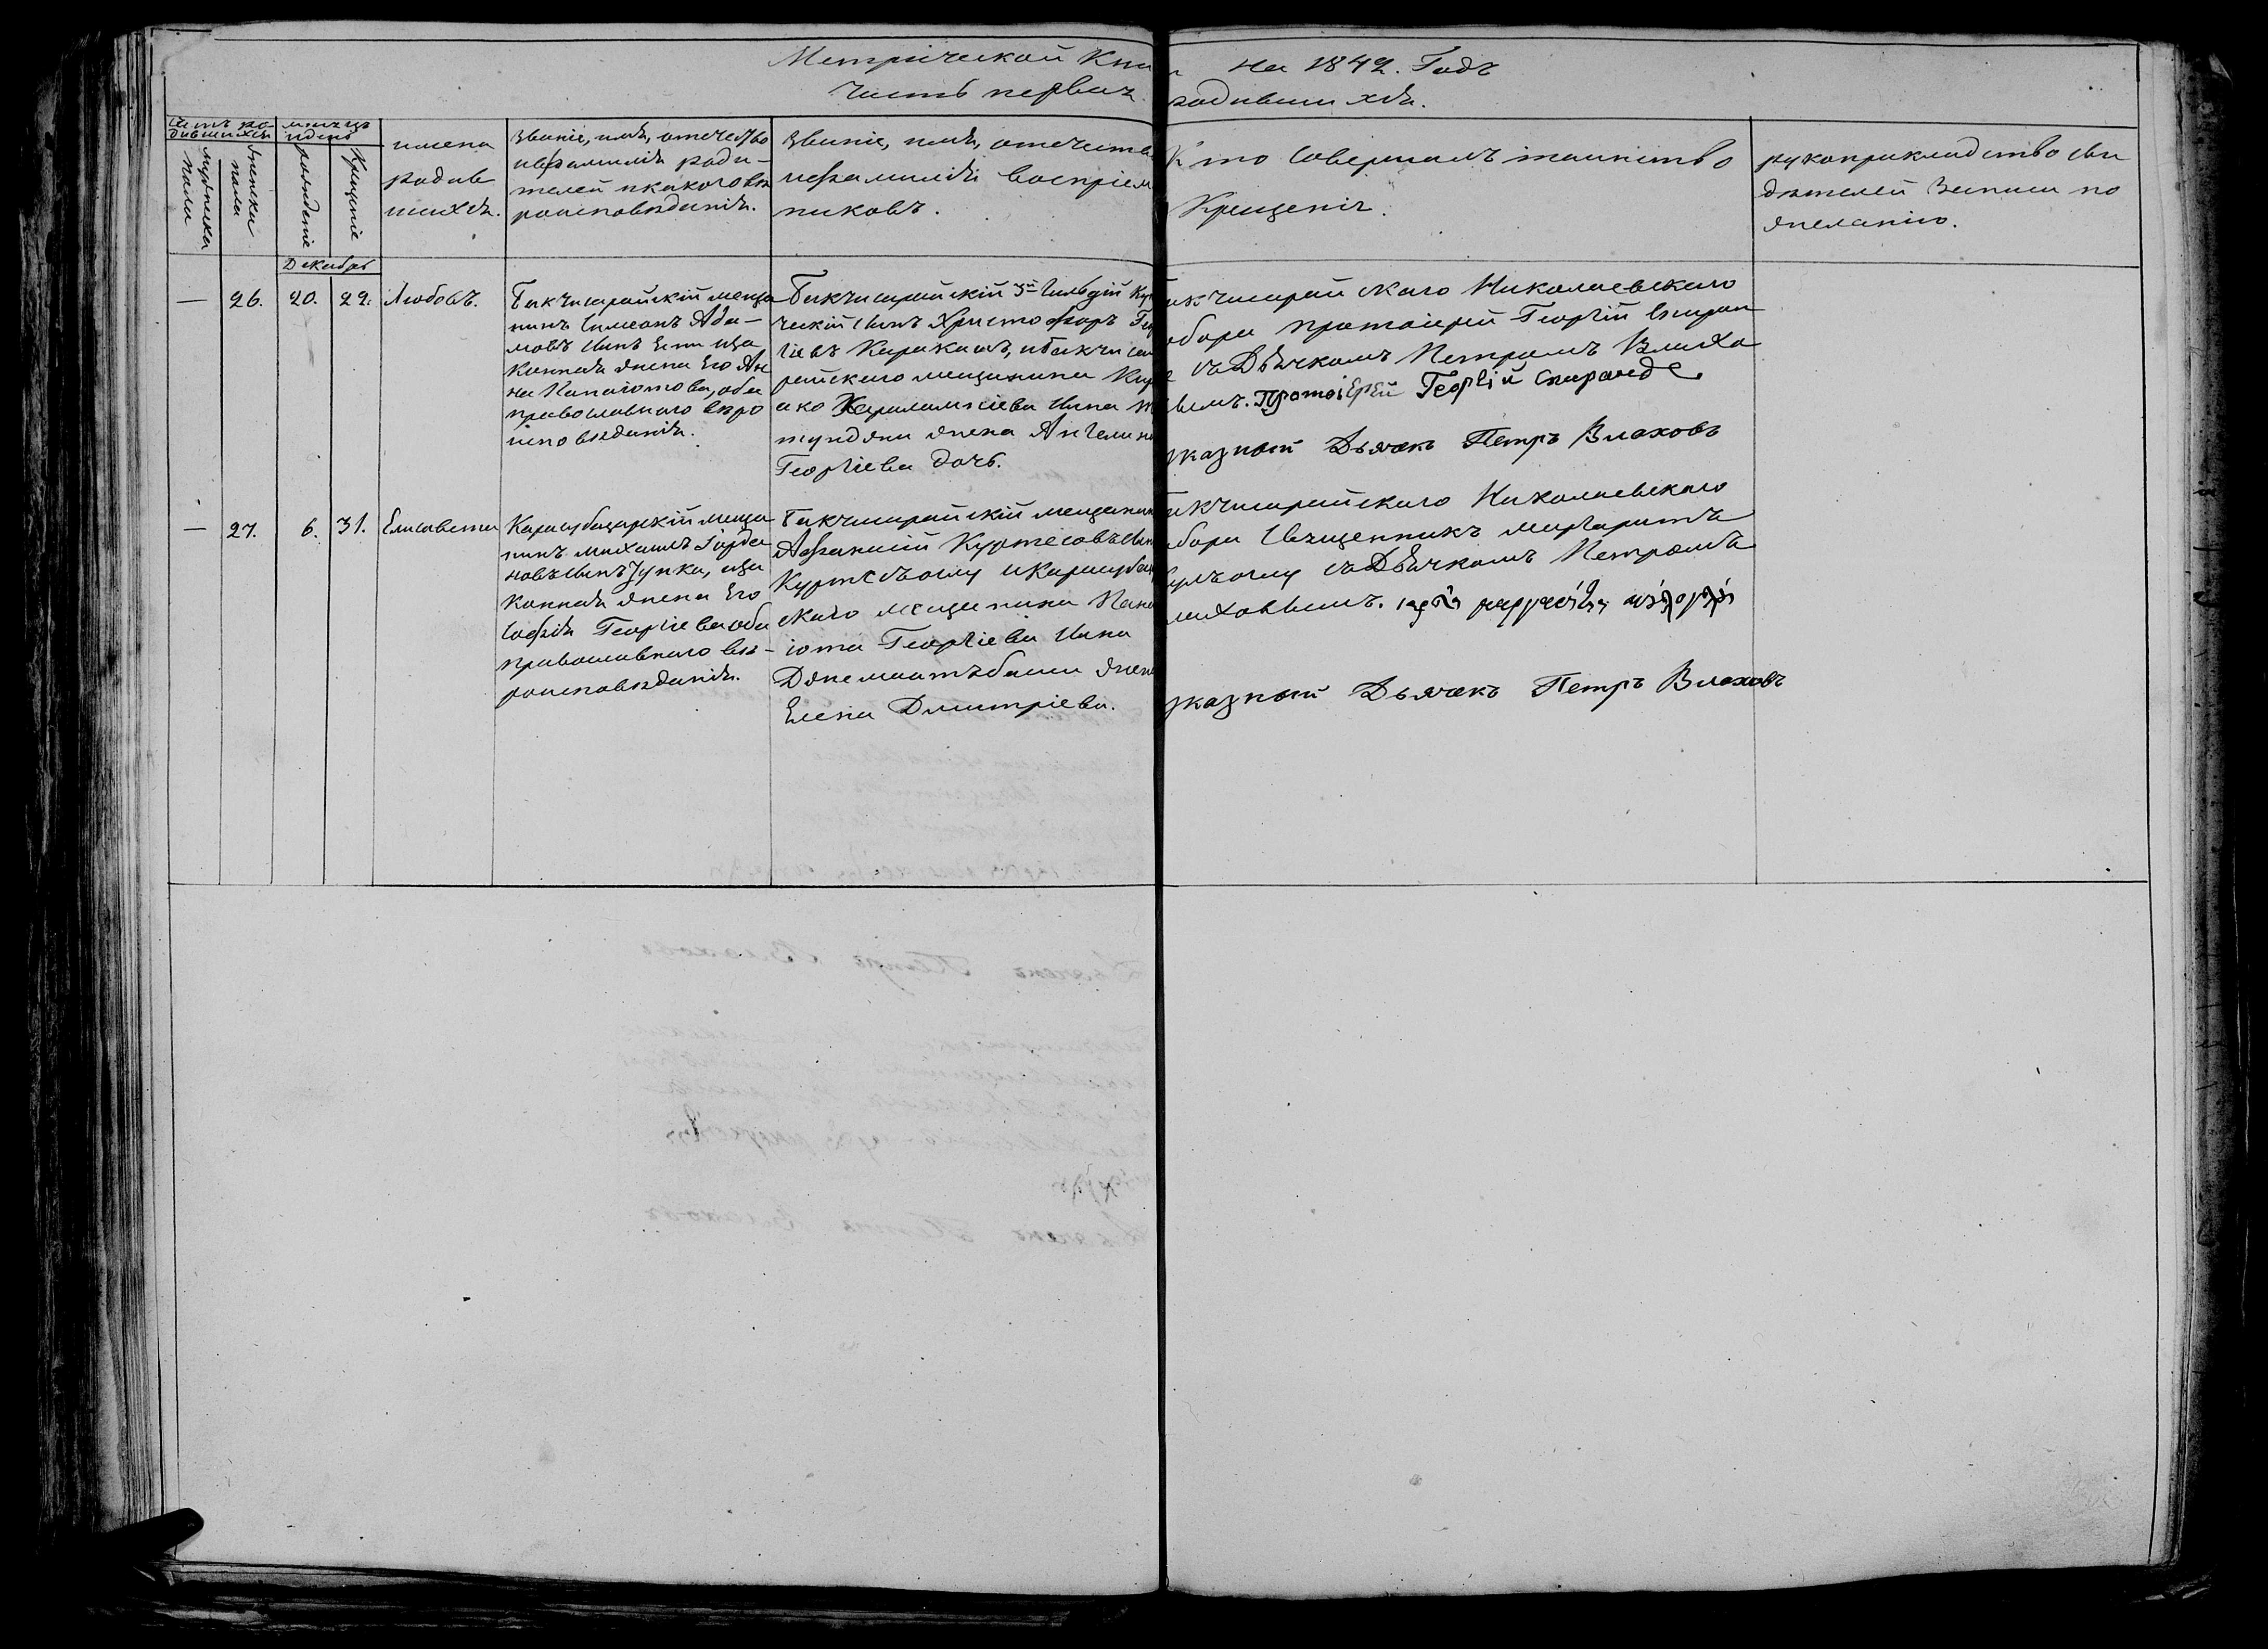 Метрической Кни на 1842. Годъ
Часть первая родившихся.
Счетъ родившихся
мужеска пола
женска пола
мѣсяцъ и день
рожденіе
Крещеніе
имена
родив
шихся.
Званіе, имя, отечество
и фамилія роди-
телей и какого вѣ
роисповѣданія.
Званіе, имя, отечеств
и фамилія воспріем
никовъ.
Кто совершалъ таинство
Крещенія.
рукоприкладство сви
дѣтелей записи по
желанію.
Декабрь
— 26. 20. 22. Любовь.
Бакчисарайскій меща
нинъ Симеонъ Ада-
мовъ сынъ
конная жена Его Ан
на Панаіотова, оба
православнаго вѣро
исповѣданія.
Бакчисарайскій 3й Гильдій Куп
ческій сынъ Христофоръ Гео
гіевъ Каракашъ, и бакчиса
райскаго мещанина Кир
ако Харалампіева сына
жена Ангелина
Георгіева дочь.
акчисарайскаго Николаевскаго
обора протоіерей Георгій Спиран
съ Дьячкомъ Петромъ Влахо
вымъ. Протоіерей Георгій Спиранде
указной Дьячекъ Петръ Влаховъ
— 27. 6. 31. Елисавета
Карасубазарскій меща
нинъ михаилъ Іорда
новъ сынъ Зупка, и за
конная жена Его
Софія Георгіева оба
православнаго вѣ-
роисповѣданія.
Бакчисарайскій мещанин
Афанасій Куртесовъ сын
Куртсъоглу и Карасубаз
скаго мещанина Пана
іота Георгіева сына
жен
Елена Димитріева.
акчисарайскаго Николаевскаго
обора Священникъ маргаритъ
съ Дьячкомъ Петромъ
лаховымъ.
указной Дьячекъ Петръ Влаховъ